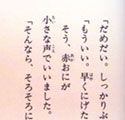 「だめだい。しっかりぶ
「もういい。早くにげた
そう、赤おにが
小さな声でいいました。
「そんなら、そろそろに